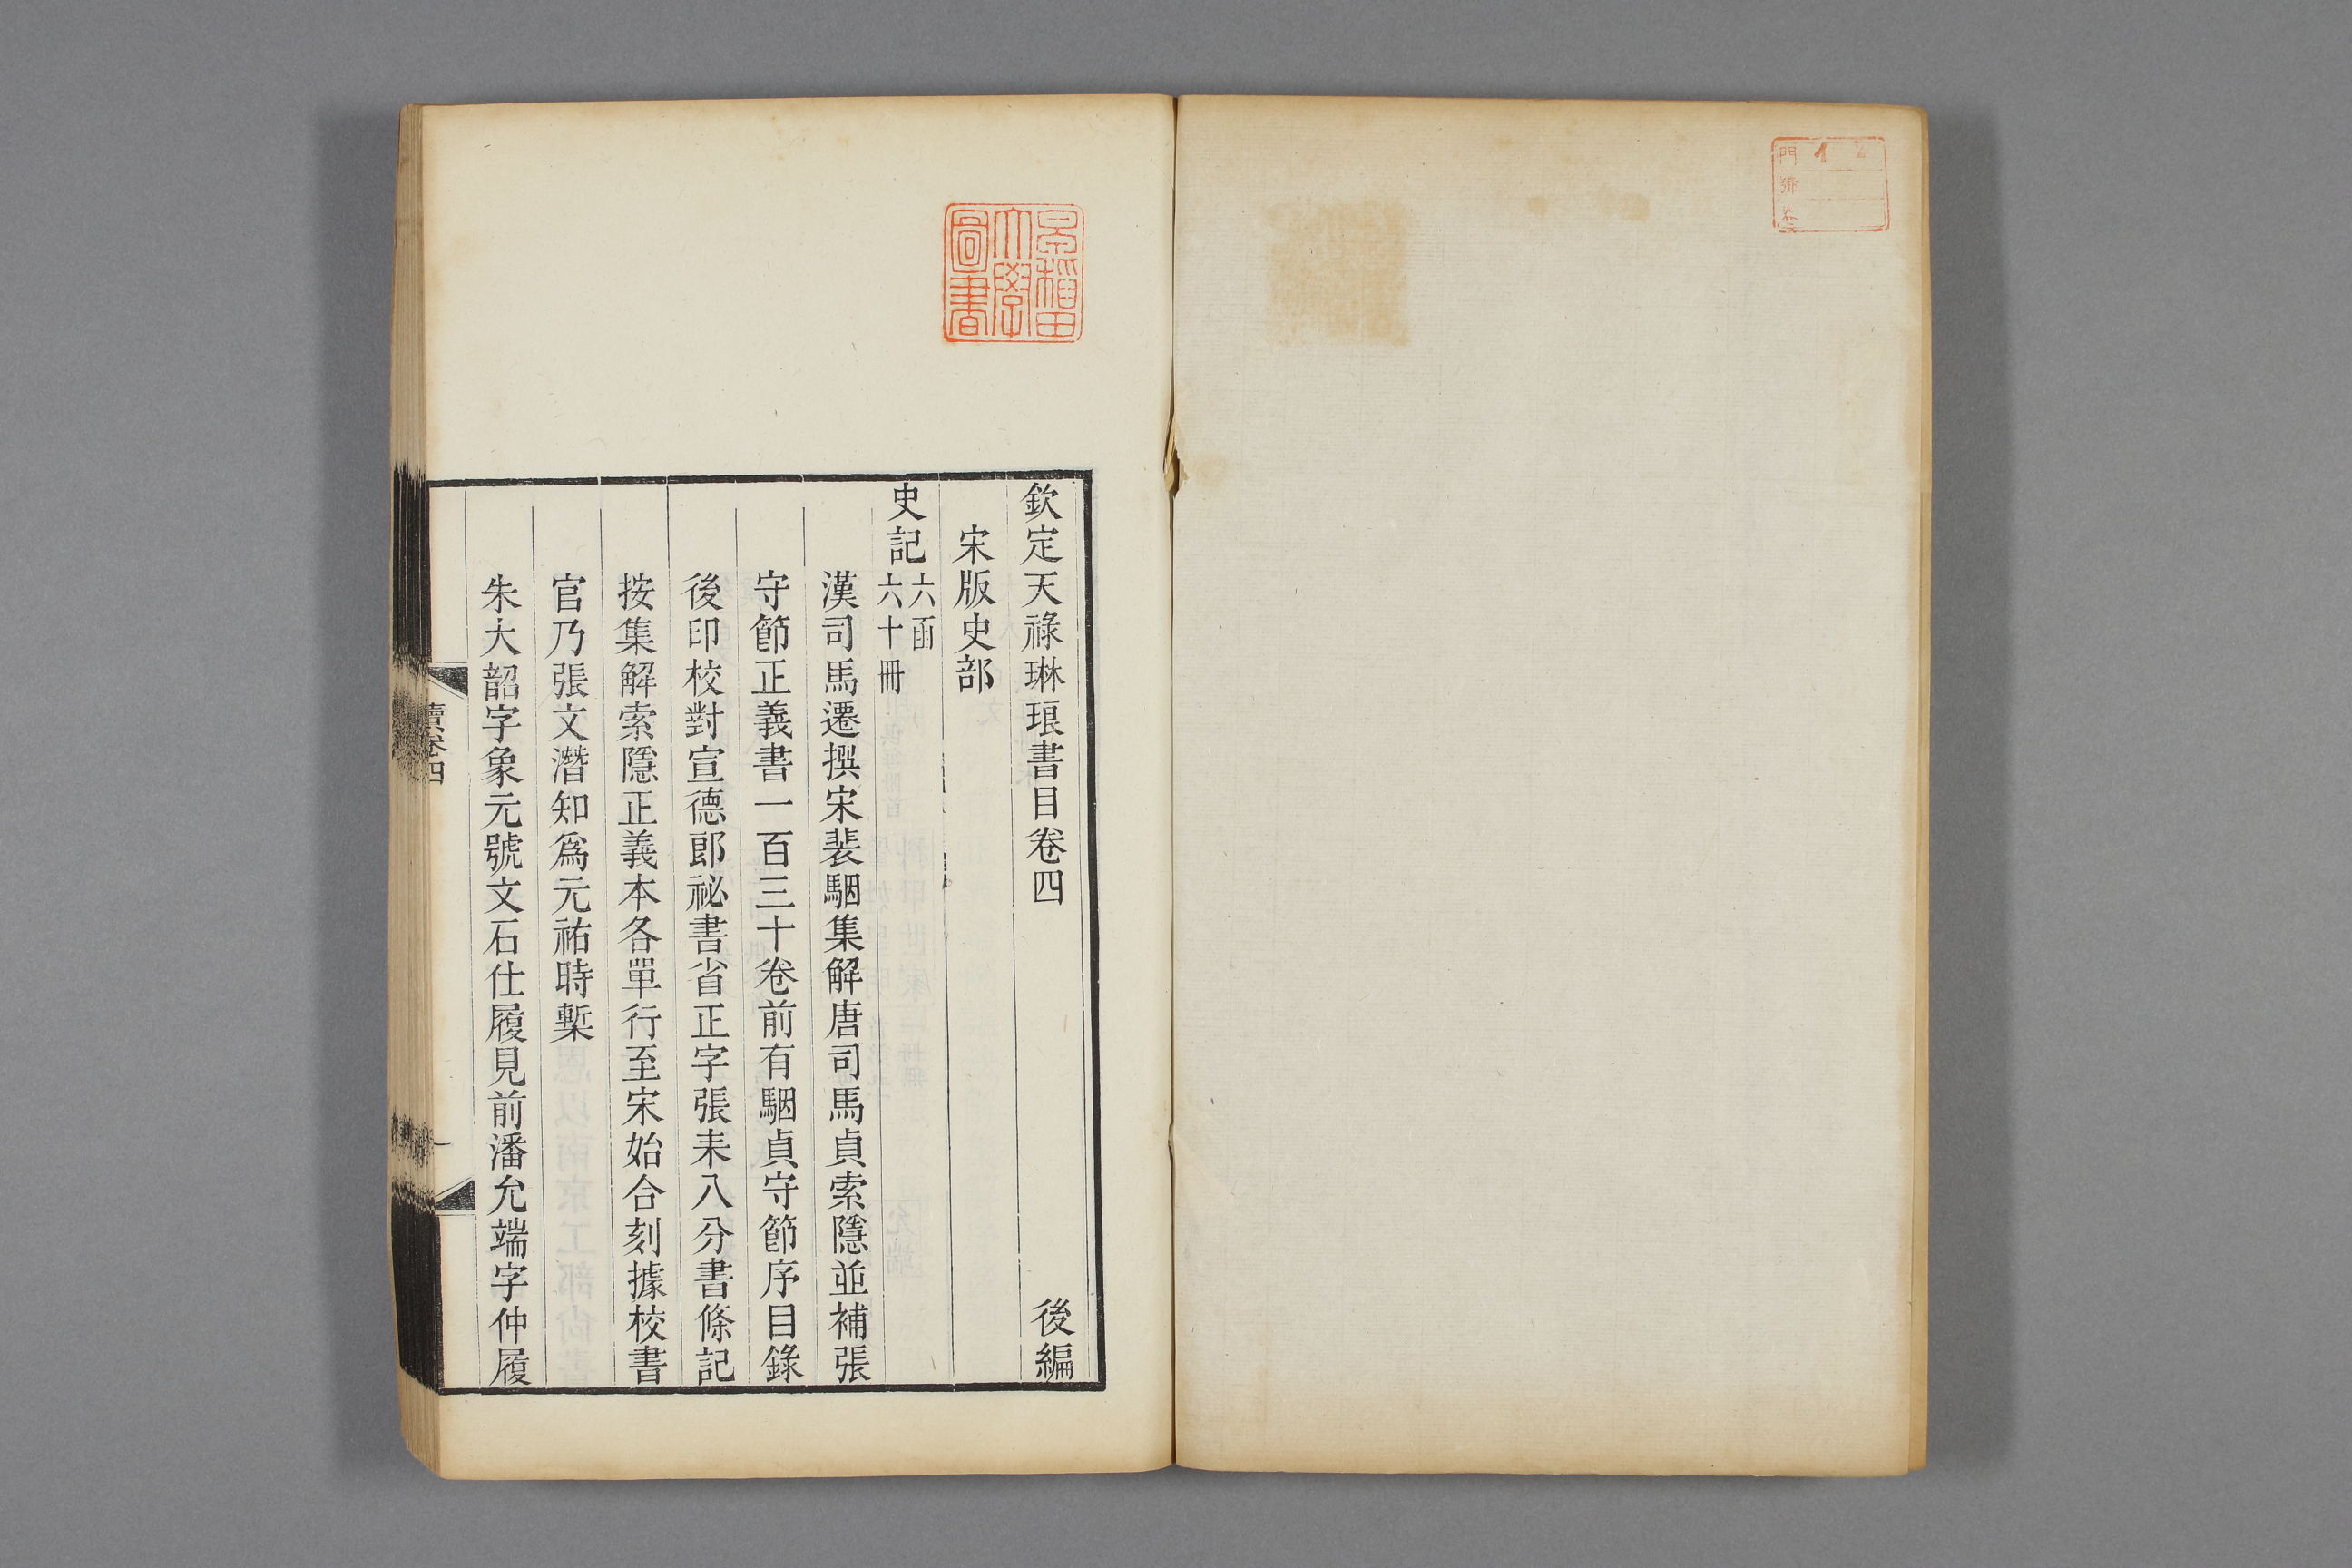 門
号
巻
早稲田
大學
圖書
欽定天祿琳琅書目卷四 後編
宋版史部
史記六函六十冊
漢司馬遷撰宋裴駰集解唐司馬貞索隱並補張
守節正義書一百三十卷前有駰貞守節序目錄
後印校對宣德郎祕書省正字張耒八分書條記
按集解索隱正義本各單行至宋始合刻據校書
官乃張文潛知爲元祐時槧
朱大韶字象元號文石仕履見前潘允端字仲履
續卷四
一